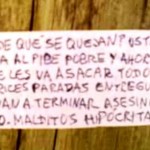 DE QUE SE QUEJAN? USTE
A AL PIBE POBRE Y AHOR
LES VA A SACAR TODO
RICES PARADAS ENTREGU
VAN A TERMINAR ASESIN
O. MALDITOS HIPOCRITA